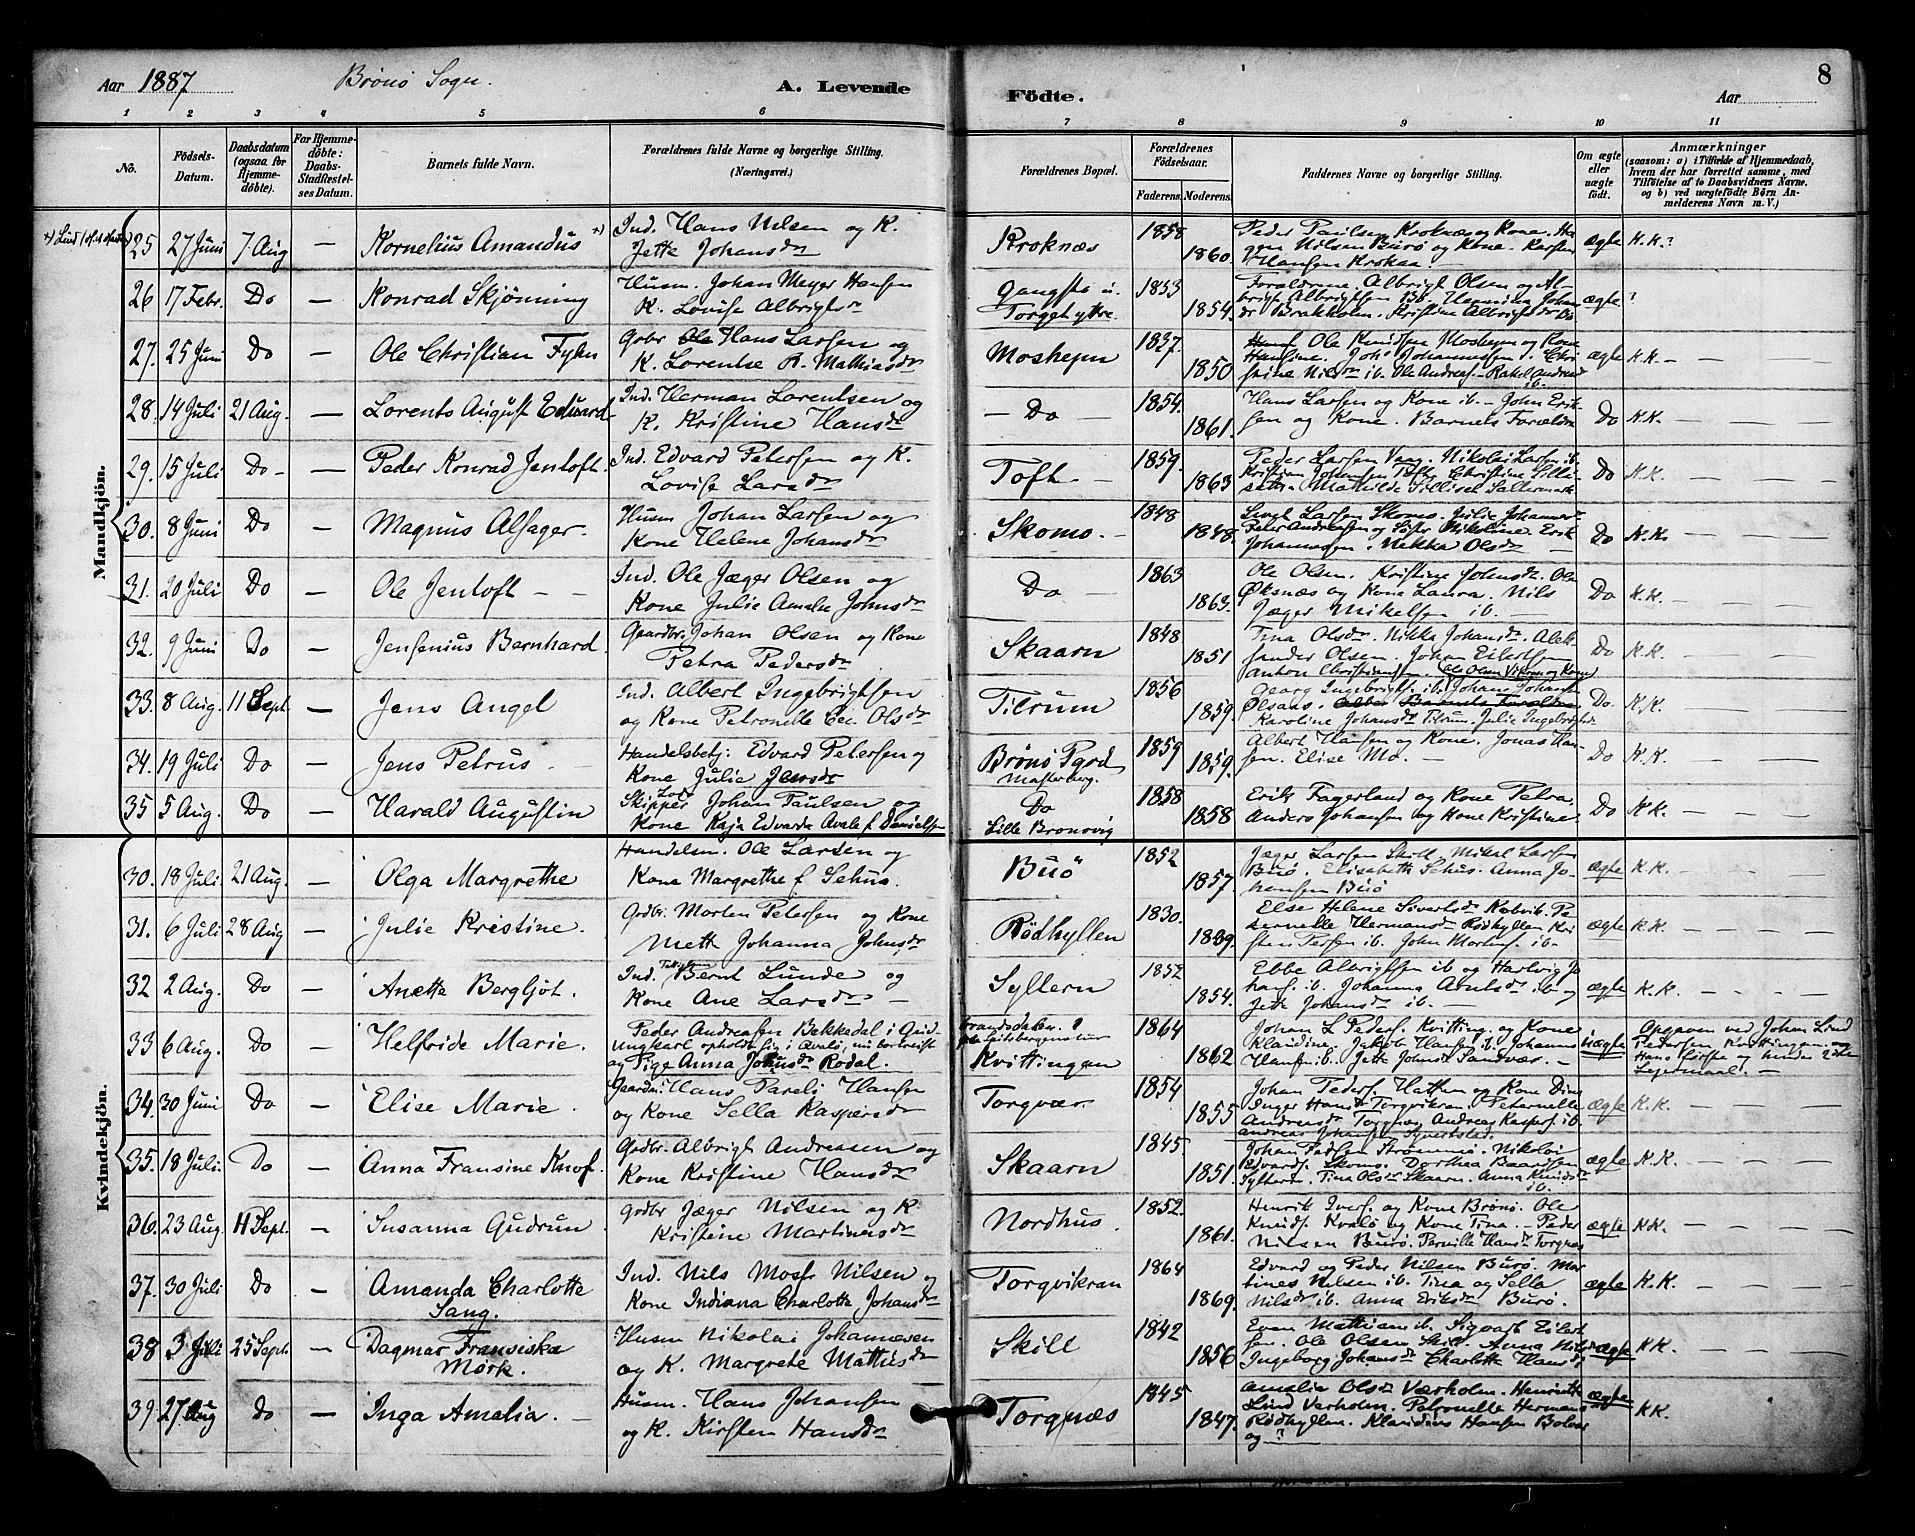 Aar 1887 Brönö Sogn. A. Levende Födte. Aar 8
1 2 3 4 5 6 7 8 9 10 11
No. Födsels-Datum. Daabsdatum (ogsaa for Hjemmedöbte). For Hjemmedöbte: Daabs-Stadfæstelses Datum. Barnets fulde Navn. Forældrenes fulde Navne og borgerlige Stilling. (Næringsvei.) Forældrenes Bopæl. Forældrenes Födselsaar. Faderens. Moderens. Faddernes Navne og borgerlige Stilling. Om ægte eller uægte födt. Anmærkninger (saasom: a) i Tilfælde af Hjemmedaab, hvem der har forrettet samme, med Tilföielse af to Daabsvidners Navne, og b) ved uægtefödte Börn Anmelderens Navn m. V.)
Mandkjön.
25 27 Juni 7 Aug — Kornelius Amandus x) Ind. Hans Nilsen og K. Jette Johansdr Kroknæs 1858 1860. Peder Paulsen Kroknæs og Kone. Nilsen Burö og Kone. Hansen Krokaa — ægte K.K.?
26 17 Febr. Do — Konrad Skjönning Husm. Johan Meyer Hansen K. Lovise Albrigtsdr Gangstö u. Torget ytre. 1853 1854. Forældrene. Albrigt Olsen og Albrigt Albrigtsen Bö. Hermina Johansdr Brakholm. Kristine Albrigtsdr Bö ægte ?
27. 25 Juni Do — Ole Christian Fyhn Gdbr. Hans Larsen og K. Lorentse B. Mathiasdr Mosheim 1837. 1850 Ole Knudsen Mosheim og Kone Hansine. Joh. Johannessen. Christine Nilsdr ib. Ole Andreas. Rakel Andreasd ib. ægte K.K. —
28. 14 Juli 21 Aug. — Lorents August Edvard Ind. Herman Lorentsen og K. Kristine Hansdr — Do — 1854. 1861. Hans Larsen og Kone ib. — John Eriksen og Kone. Barnets Forældre Do K.K. —
29. 15 Juli Do — Peder Konrad Jentoft. Ind. Edvard Petersen og K. Lovise Larsdr Toft — 1859. 1863 Peder Larsen Vaag. Nikolai Larsen ib. Kristian Johansen Toft. Christine Mathilde Do K.K.
30. 8 Juni Do — Magnus Alfager. Husm Johan Larsen og Kone Helene Johansdr Skomo. — 1848 1848. Sivert Larsen Skomo. Julie Johannesdr Peter Andreasen og Söster Nikoline. Erik Johannesen. Mekka Olsdr — Do K.K.
31. 20 Juli Do — Ole Jentoft — — Ind. Ole Jæger Olsen og Kone Julie Amalie Johnsdr Do — 1863 1863. Ole Olsen. Kristine Johnsdr. Ole Öksnæs og Kone Laura. Nils Jæger Mikelsen ib. Do K.K.
32. 9 Juni Do — Jensenius Bernhard. Gaardbr. Johan Olsen og Kone Petra Pedersdr Skaarn 1848 1851 Tina Olsdr. Nikka Johansdr. Aleksander Olsen. Johan Eilertsen Anton Christiansen. Do K.K.
33. 8 Aug. 11 Sept. — Jens Angel Ind. Albert Ingebrigtsen og Kone Petronelle Cec. Olsdr Tilrum 1856 1859. Georg Ingebrigts. ib. Johan Johansen Ölsaas. Karoline Johansdr Tilrum. Julie Ingebrigtsdr Do K.K.
34. 19 Juli Do — Jens Petrus — Handelsbetj: Edvard Petersen og Kone Julie Jensdr Brönö Pgrd Masterberg. 1859 1859. Albert Hansen og Kone. Jonas Hansen. Elise Mo. — Do K.K
35 5 Aug. Do — Harald Augustin Skipper Johan Paulsen og Kone Kaja Edvarda Avale f. Danielsen Do Lille Brönövig 1858 1858 Erik Fagerland og Kone Petra. Anders Johansen og Kone Kristine Do K.K. —
Kvindekjön.
30. 18 Juli 21 Aug. — Olga Margrethe Handelsm. Ole Larsen og Kone Margrethe f. Sehus. Buö 1852 1857. Jæger Larsen Skill. Mikal Larsen Buö. Elisabeth Sehus. Anna Johansen Burö ægte K.K. —
31. 6 Juli 28 Aug — Julie Kristine. Gdbr. Morten Petersen og Kone Mette Johanna Johnsdr Rödhyllen 1830. 1839. Else Helene Sivertsdr. Peternelle Hermansdr Rödhyllen John Mortens. ib. ægte K.K. —
32 2 Aug. Do — Anette Bergljot. Ind. Bernt Lunde og Kone Ane Larsdr — Syltern 1852 1854. Ebbe Albrigtsen ib og Hartvig Johans. ib. Johanna Arntsdr ib og Jette Johansdr ib. — ægte K.K.
33 6 Aug. Do — Helfride Marie. Peder Andreasen Bekkedal i Ungkarl opholdt sig i Avalö, nu bortreist og Pige Anna Johnsdr Rodal. Kvittingen 1864 1862 Johan L. Peders. Kvitting. og Kone Klaudine. Jakob Hansen ib. Johannes Hansen ib. Jette Johnsdr Sandvær. — uægte Opgaven ved Johan Lind Petersen Kvittingen. og Lejermaal. —
34. 30 Juni Do — Elise Marie. Gaardm: Hans Pareli Hansen og Kone Sella Kaspersdr Torgvær. 1854 1855 Johan Peders. Hatten og Kone Dina Inger Hansdr Torgvikran. Peternelle Andreasdr Torgnæs Andreas Kaspers. ib. Andreas Johansen Syvertstad. ægte K.K.
35. 18 Juli. Do — Anna Fransine Knof. Gdbr. Albrigt Andreasen og Kone Kristine Hansdr Skaarn 1845. 1851. Johan Strömmö. Nikolai Edvards. Skomo. Dorthea Baardsen Syltern. Tina Olsdr Skaarn. Anna Knudsdr ib. ægte K.K.
36. 23 Aug. 11 Sept. — Susanna Gudrun. Gdbr Jæger Nilsen og K Kristine Martinusdr Nordhus. 1852. 1861. Henrik Ivers. og Kone Brönö. Ole Knuds. Kvalö og Kone Tina. — Peder Nilsen Burö. Pernille Hansdr Torgnæs ægte K.K. —
37. 30 Juli Do — Amanda Charlotte Sang. Ind. Nils Moses Nilsen og Kone Indiana Charlotte Johansdr Torgvikran 1864 1869. Edvard og Peder Nilsen Burö. Martines Nilsen ib. Tina og Sella Nilsdr ib. Anna Eriksdr Burö. ægte K.K. —
38 3 Juli 25 Sept. — Dagmar Fransiska Mörk. Husm Nikolai Johannesen og K. Margrete Mathisdr Skill 1842 1856 Even Mathiasen ib. Sigvart Eilertsen. Ole Olsen Skill. Anna Nilsdr Ingeborg Johansdr Charlotte Hansdr ægte K.K. —
39. 27 Aug Do — Inga Amalia. — Husm. Hans Johansen og K. Kirsten Hansdr Torgnæs 1845 1847. Amalia Olsdr Værholm. Henriette Lind Verholm. Petronelle Hermansdr Rödhyllen. Klaudius Hansen og ? ægte KK. —